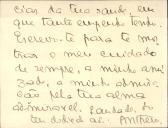 cias da tua saude, em
que tanto emprendo tendo.
Escrevo-te para te mos
trar o meu cuidado
de sempre, a minha ami
zade, a minha admira
ção pela tua alma
admiravel. Saudades. Do
teu dedicado